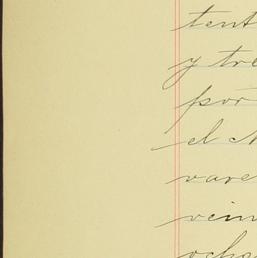 tent
y tre
por
el N
vare
vein
ocho